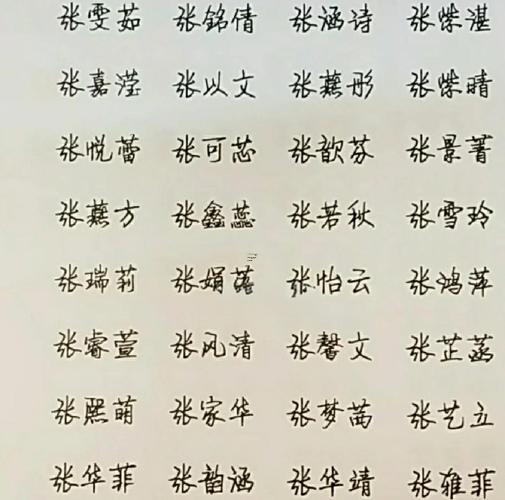 张雯茹 张铭倩 张涵诗 张姝湛
张嘉滢 张以文 张燕彤 张姝晴
张悦蕾 张可芯 张歆芬 张景菁
张燕方 张鑫蕊 张若秋 张雪玲
张瑞莉 张娟 张怡云 张鸿萍
张睿萱 张风清 张馨文 张芷菡
张熙萌 张家华 张梦茜 张艺立
张华菲 张韵涵 张华靖 张雅菲